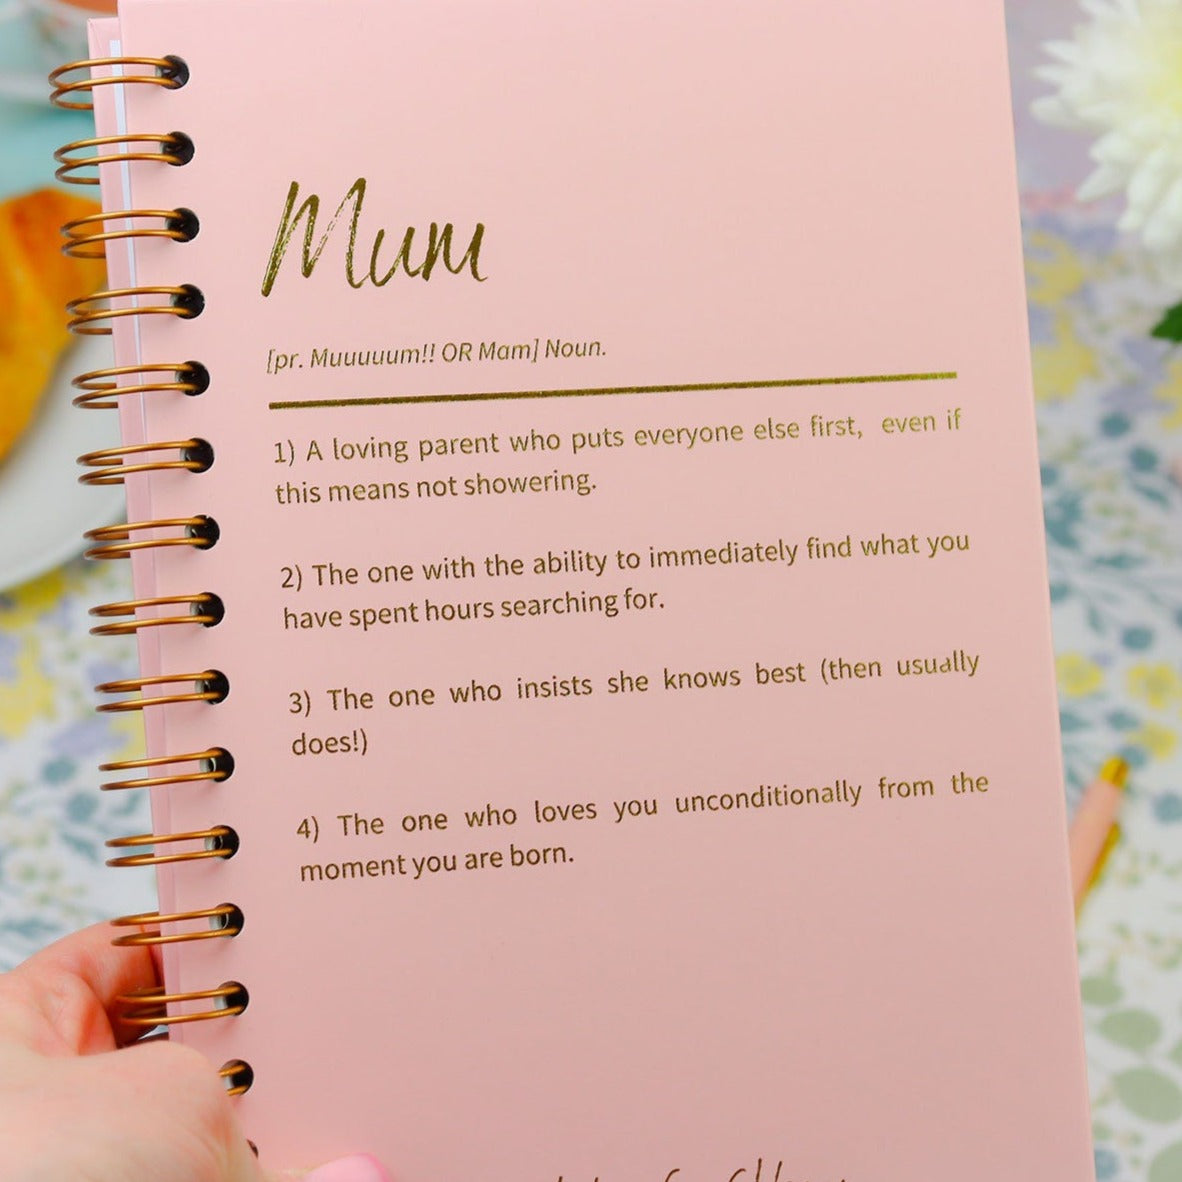 Mum
[pr. Muuuuum!! OR Mam] Noun.
1) A loving parent who puts everyone else first, even if
this means not showering.
2) The one with the ability to immediately find what you
have spent hours searching for.
3) The one who insists she knows best (then usually
does!)
4) The one who loves you unconditionally from the
moment you are born.